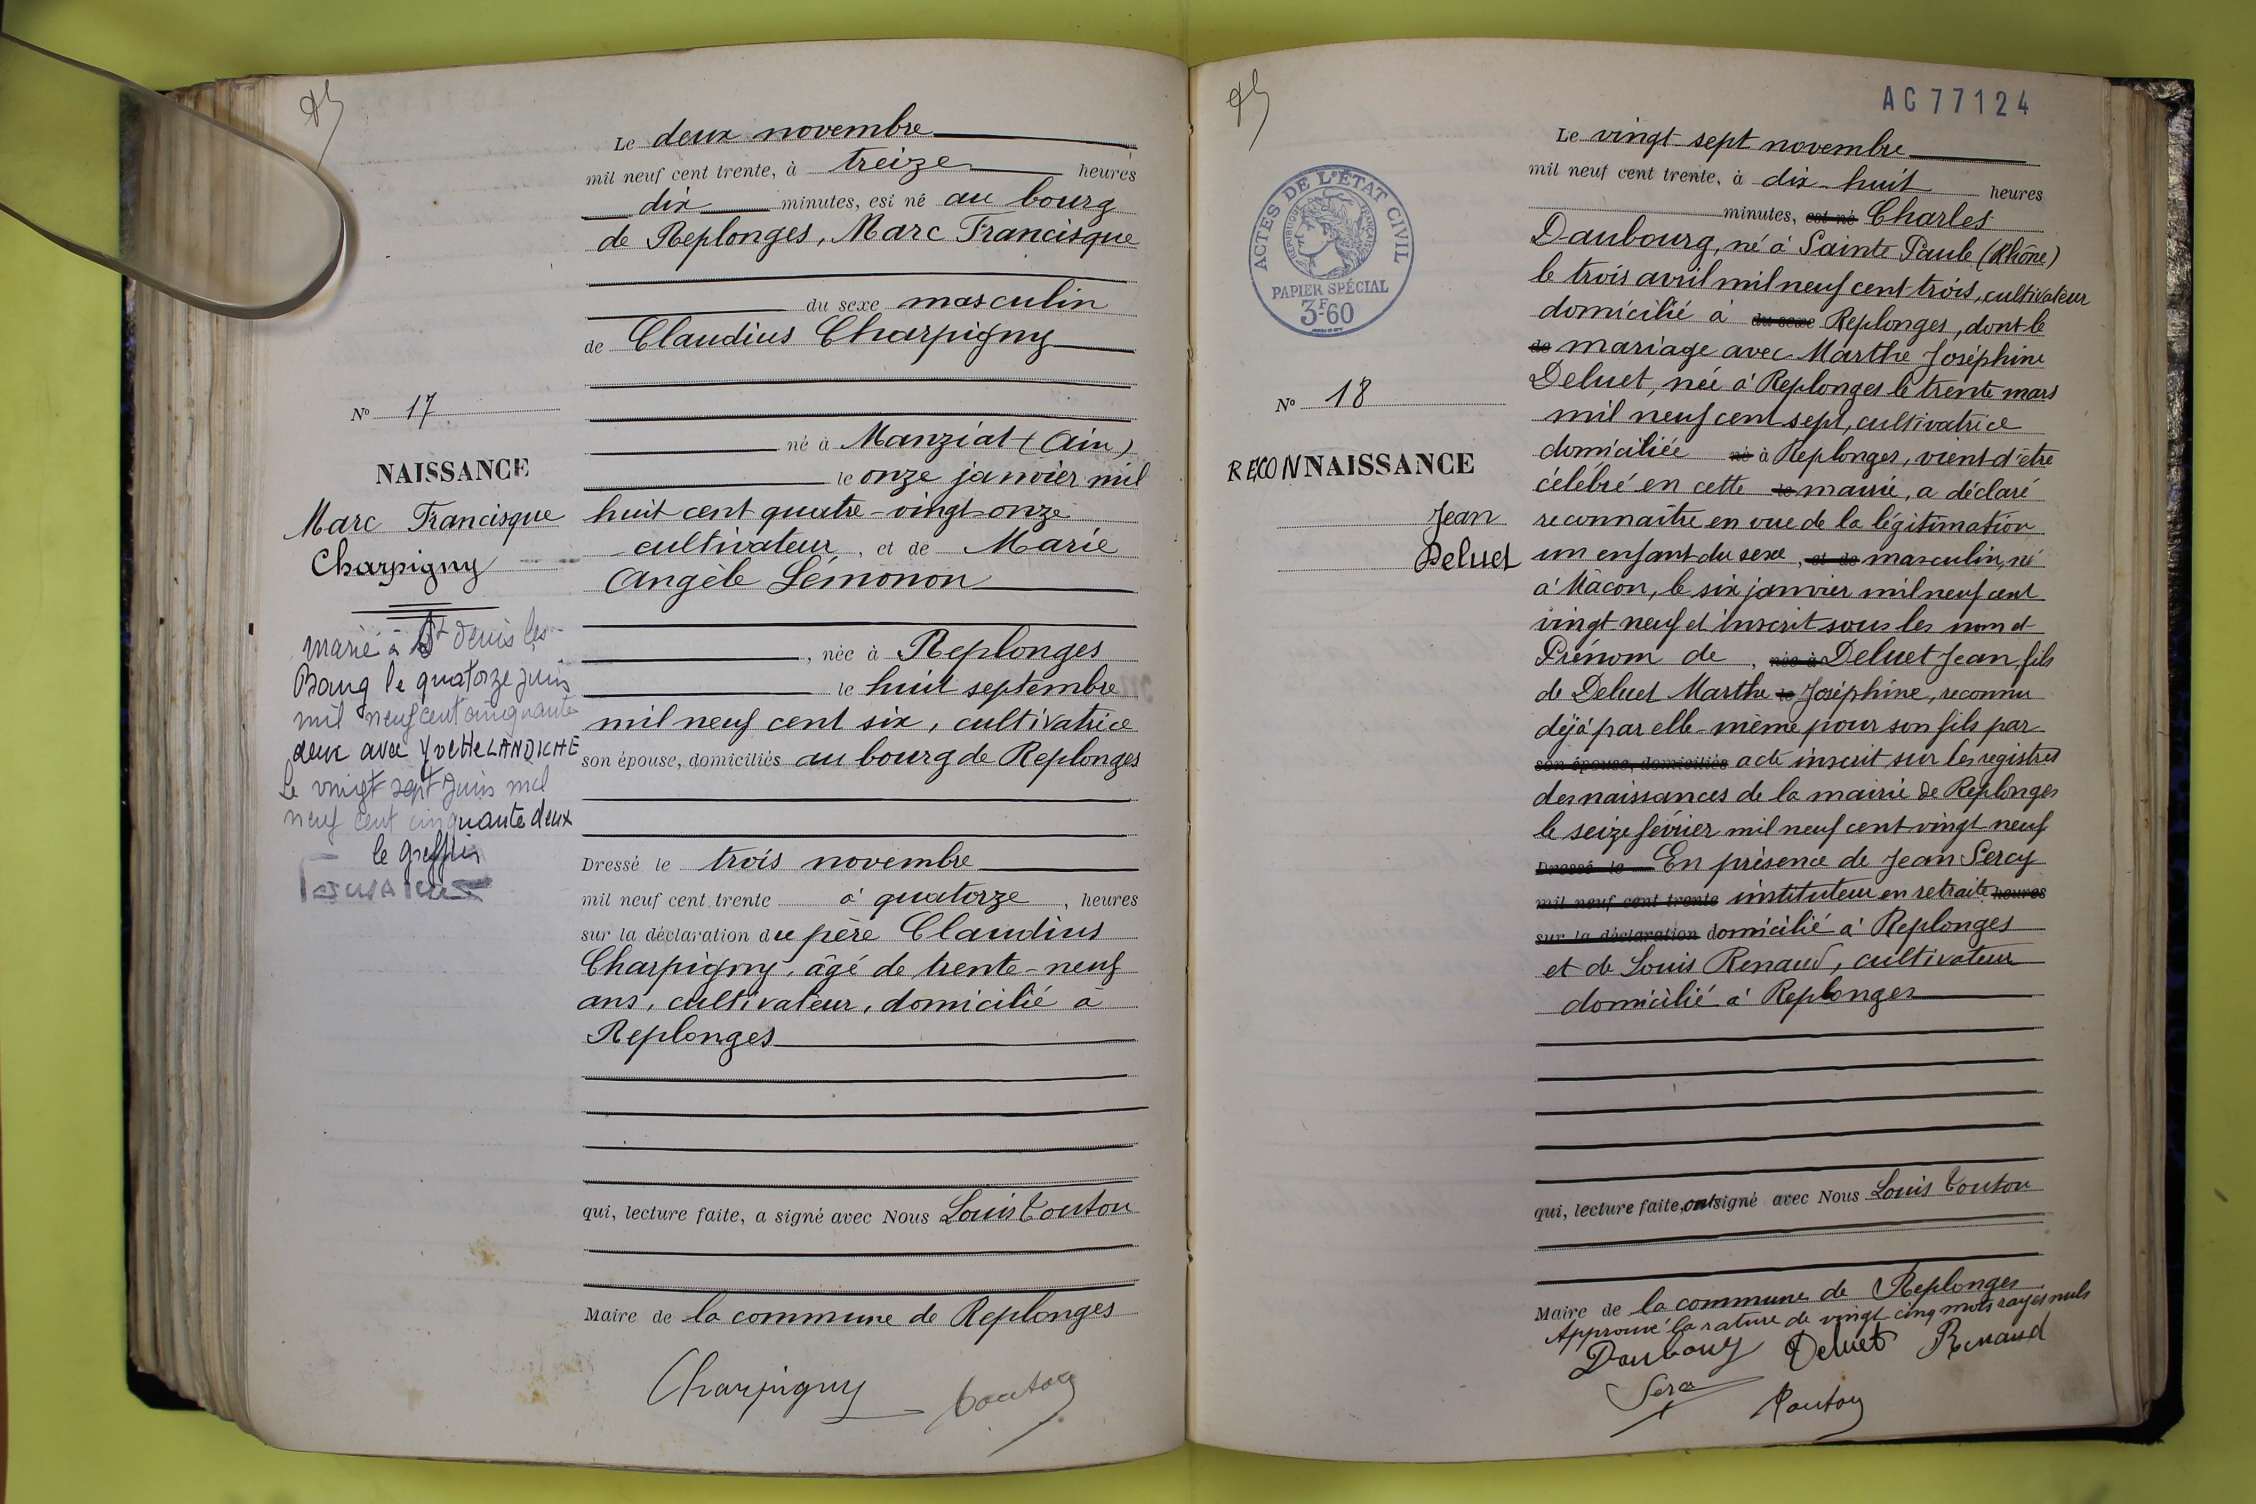 Le deux novembre
mil neuf cent trente, à treize heures
dix minutes, est né au bourg
de Replonges, Marc Francisque
du sexe masculin
de Claudius Charpigny
né à Manziat (Ain)
le onze janvier mil
huit cent quatre-vingt-onze
cultivateur, et de Marie
Angèle Lémonon
, née à Replonges
le huit septembre
mil neuf cent six, cultivatrice
son épouse, domiciliés au bourg de Replonges
Dressé le trois novembre
mil neuf cent trente à quatorze, heures
sur la déclaration du père Claudius
Charpigny, âgé de trente-neuf
ans, cultivateur, domicilié à
Replonges
qui, lecture faite, a signé avec Nous Louis Touton
Maire de la commune de Replonges
Charpigny Touton
No 17
NAISSANCE
Marc Francisque
Charpigny
marié à St Denis les
Bourg le quatorze juin
mil neuf cent cinquante
deux avec Yvette LANDICHE
Le vingt sept Juin mil
neuf cent cinquante deux
le greffier
AC77124
ACTES DE L'ÉTAT CIVIL
RÉPUBLIQUE FRANÇAISE
PAPIER SPÉCIAL
3F60
No 18
RECONNAISSANCE
Jean
Deluet
Le vingt sept novembre
mil neuf cent trente, à dix-huit heures
minutes, est né Charles
Daubourg, né à Sainte Paule (Rhône)
le trois avril mil neuf cent trois, cultivateur
domicilié à du sexe Replonges, dont le
de mariage avec Marthe Joséphine
Deluet, née à Replonges le trente mars
mil neuf cent sept, cultivatrice
domiciliée né à Replonges, vient d'être
célébré en cette le mairie, a déclaré
reconnaître en vue de la légitimation
un enfant du sexe, et de masculin, né
à Mâcon, le six janvier mil neuf cent
vingt neuf et inscrit sous les nom et
Prénom de, née à Deluet Jean, fils
de Deluet Marthe le Joséphine, reconnu
déjà par elle-même pour son fils par
son épouse, domiciliés acte inscrit sur les registres
des naissances de la mairie de Replonges
le seize février mil neuf cent vingt neuf
Dressé le En présence de Jean Sercy
mil neuf cent trente instituteur en retraite heures
sur la déclaration domicilié à Replonges
et de Louis Renaud, cultivateur
domicilié à Replonges
qui, lecture faite, ont signé avec Nous Louis Touton
Maire de la commune de Replonges
Approuvé la rature de vingt cinq mots rayés nuls
Daubourg Deluet Renaud
Touton